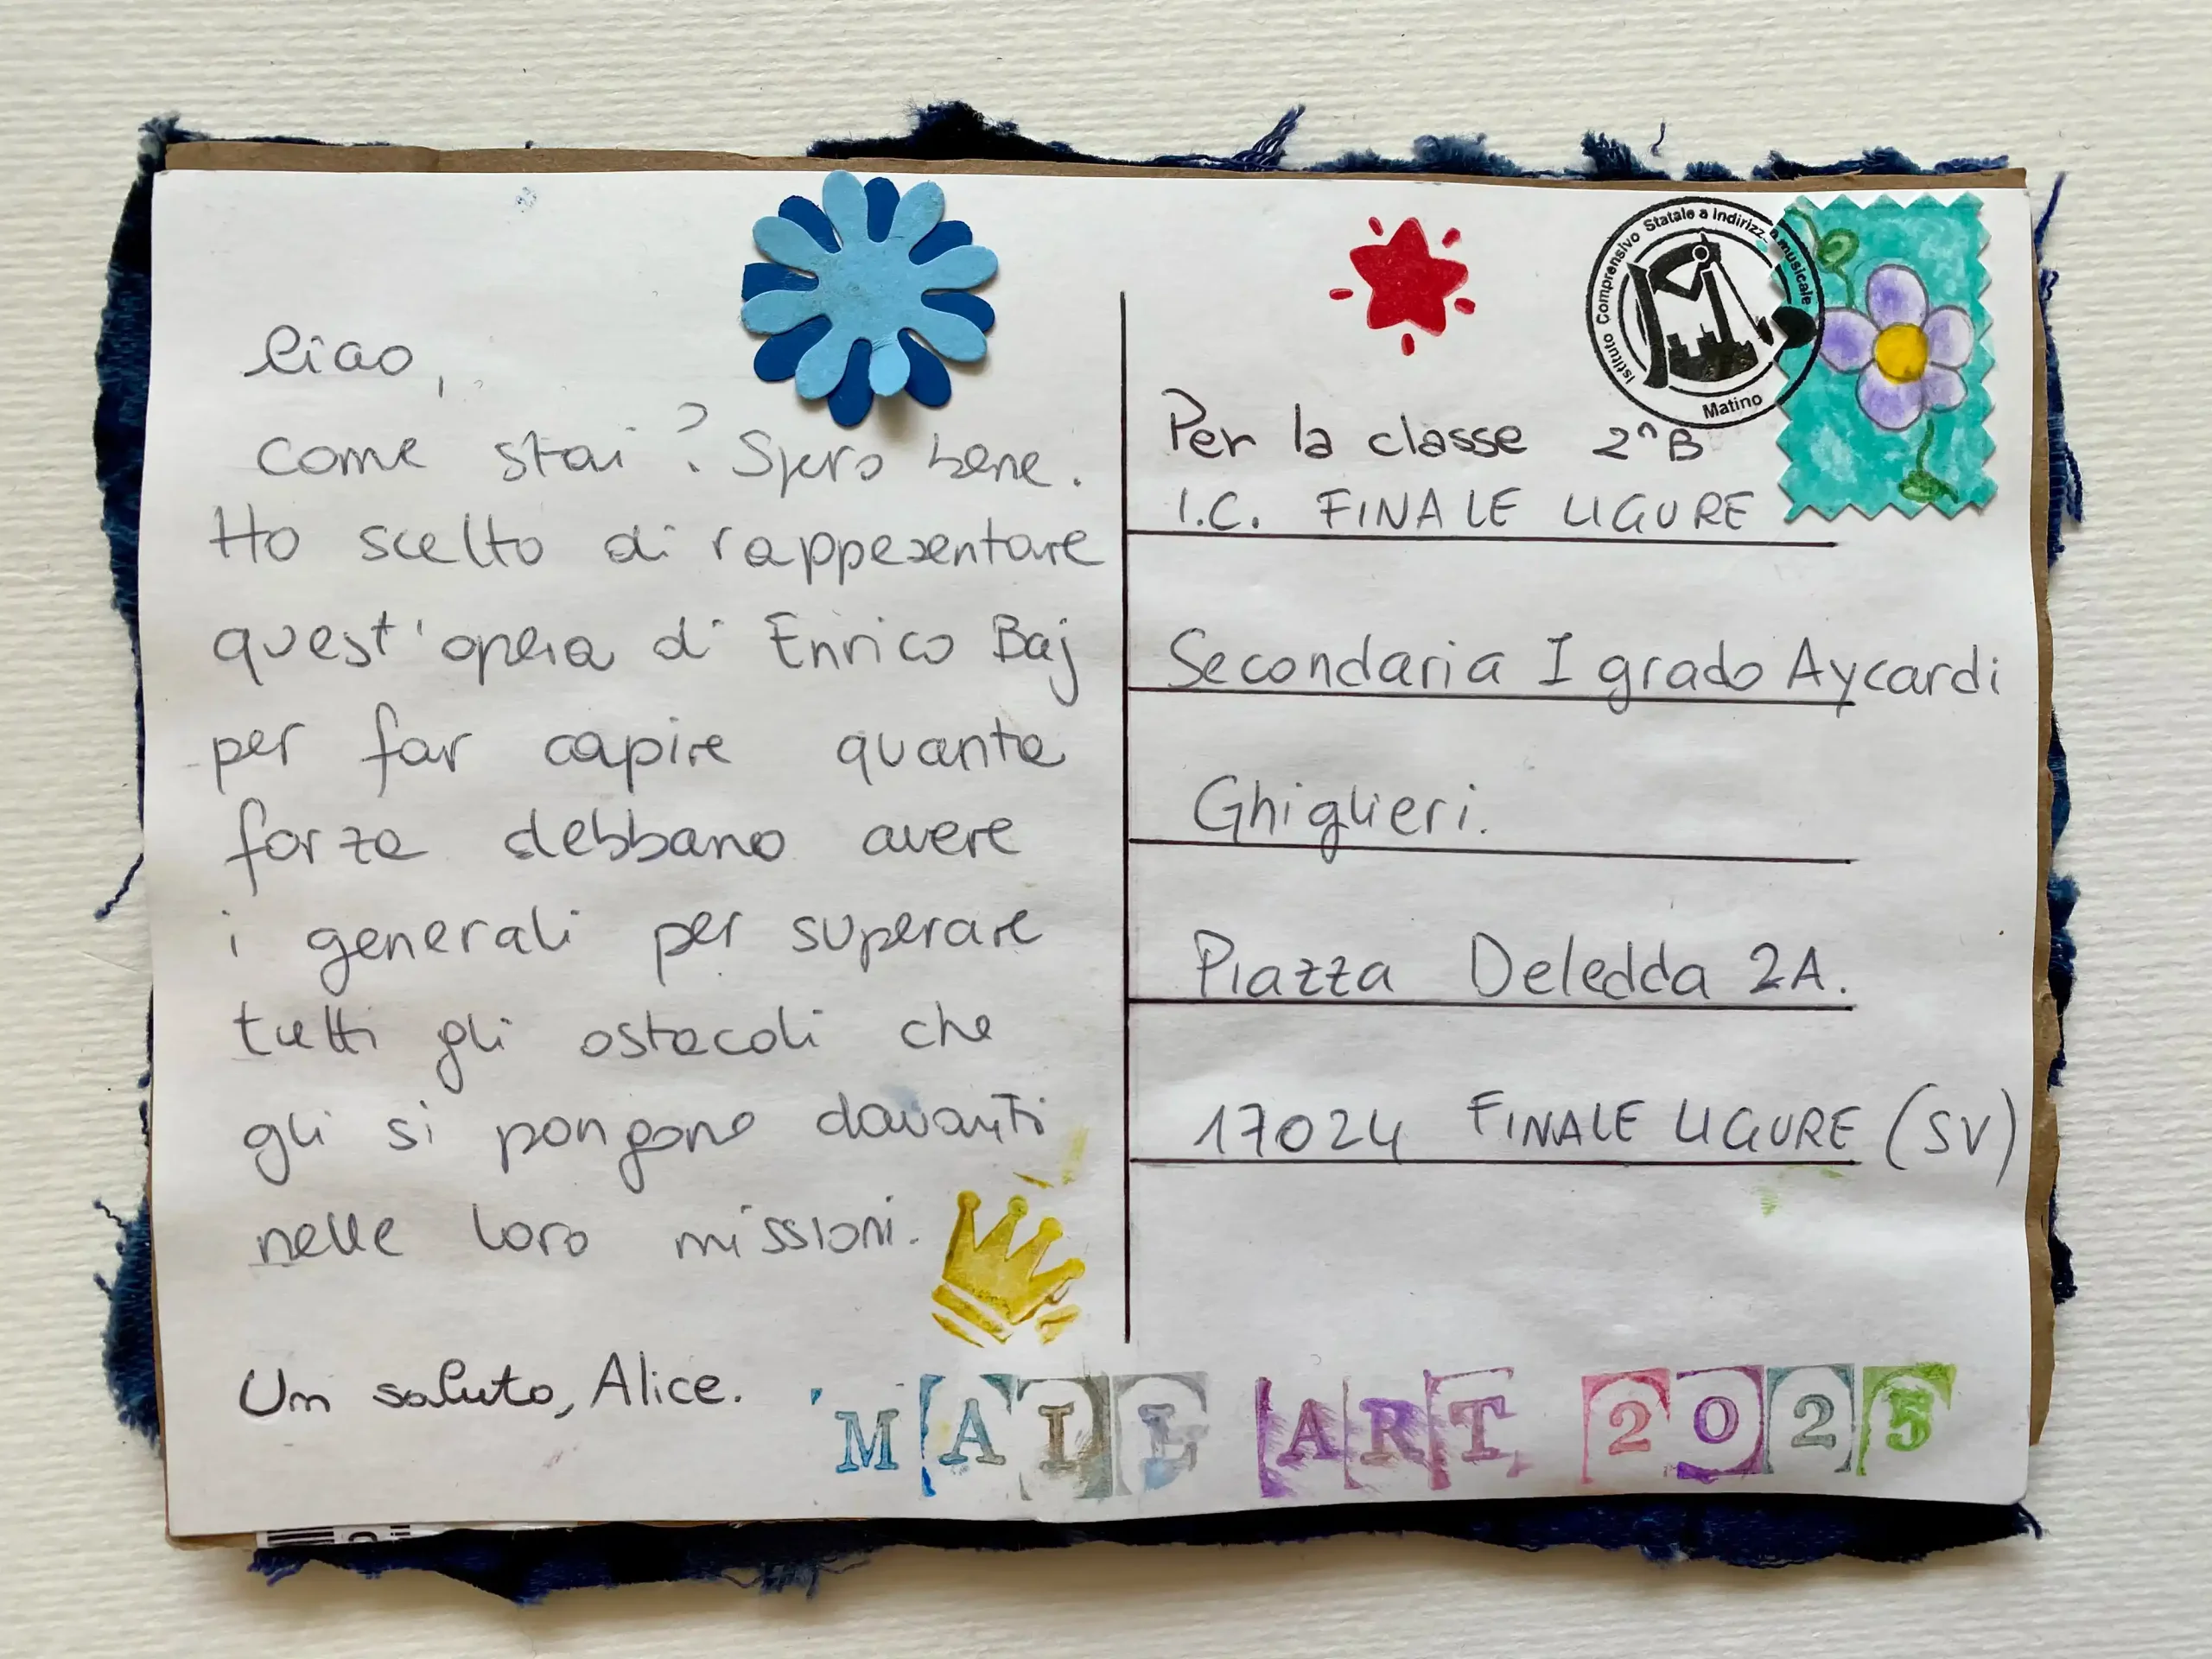 Ciao,
come stai? Spero bene.
Ho scelto di rappesentare
quest'opera di Enrico Baj
per far capire quanta
forza debbano avere
i generali per superare
tutti gli ostacoli che
gli si pongono davanti
nelle loro missioni.
Un saluto, Alice.
Istituto Comprensivo Statale a Indirizzo musicale
Matino
Per la classe 2^B
I.C. FINALE LIGURE
Secondaria I grado Aycardi
Ghiglieri.
Piazza Deledda 2A.
17024 FINALE LIGURE (SV)
MAIL ART 2025